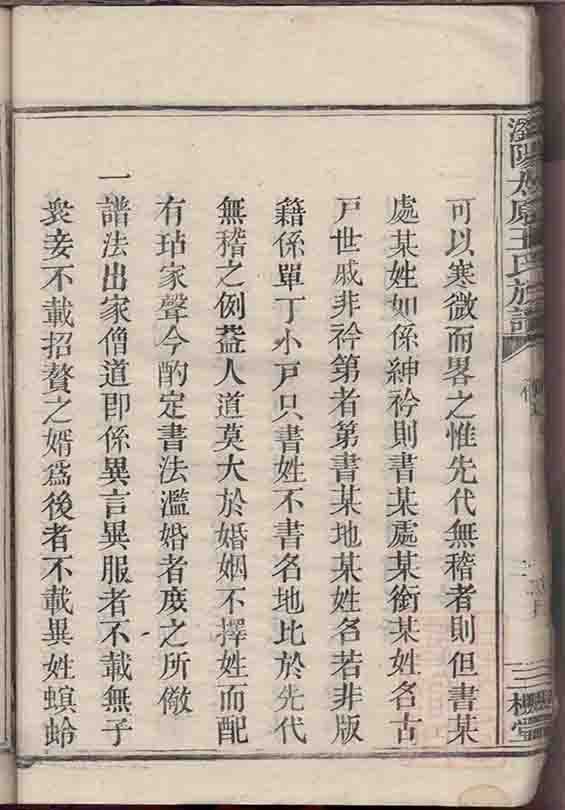 瀏陽太原王氏族譜
三槐堂
可以寒微而畧之惟先代無稽者則但書某
處某姓如係紳衿則書某處某銜某姓名古
戸世戚非衿第者第書某地某姓名若非版
籍係單丁小戸只書姓不書名地比於先代
無稽之例葢人道莫大於婚姻不擇姓而配
有玷家聲今酌定書法濫婚者庋之所儆
一譜法出家僧道卽係異言異服者不載無子
衆妾不載招贅之婿爲後者不載異姓螟蛉